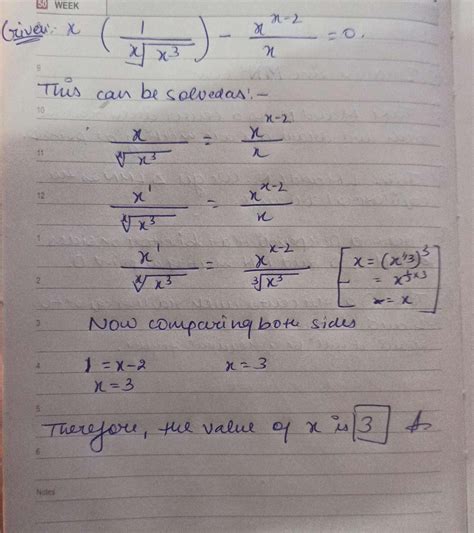 50 WEEK
Given: x (1/ˣ√x³) - xˣ⁻²/x = 0.
9
This can be solved as:-
10
11 x/ˣ√x³ = xˣ⁻²/x
12 x¹/ˣ√x³ = xˣ⁻²/x
1
2 x¹/ˣ√x³ = xˣ⁻²/³√x³ [x = (x^1/3)³
= x^1/3×3
= x]
3 Now comparing both sides
4 1 = x-2 x = 3
x = 3
5
Therefore, the value of x is 3
6
Notes